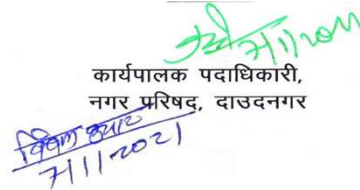 7/11/2021
कार्यपालक पदाधिकारी,
नगर परिषद, दाउदनगर
7/11/2021